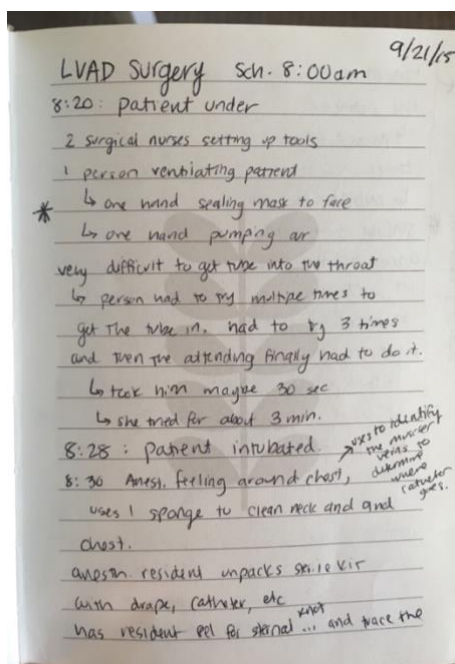 9/21/15
LVAD Surgery Sch. 8:00am
8:20: patient under
2 surgical nurses setting up tools
1 person ventilating patient
* ↳ one hand sealing mask to face
↳ one hand pumping air
very difficult to get tube into the throat
↳ person had to try multiple times to
get the tube in, had to try 3 times
and then the attending finally had to do it.
↳ took him maybe 30 sec
↳ she tried for about 3 min.
8:28 : patient intubated.
8:30 Anest. feeling around chest,
→ uses to identify
the muscles
veins to
determine
where
catheter
goes.
uses 1 sponge to clean neck and and
chest.
anesth. resident unpacks sterile kit
with drape, catheter, etc
has resident feel for sternal knot ... and trace the